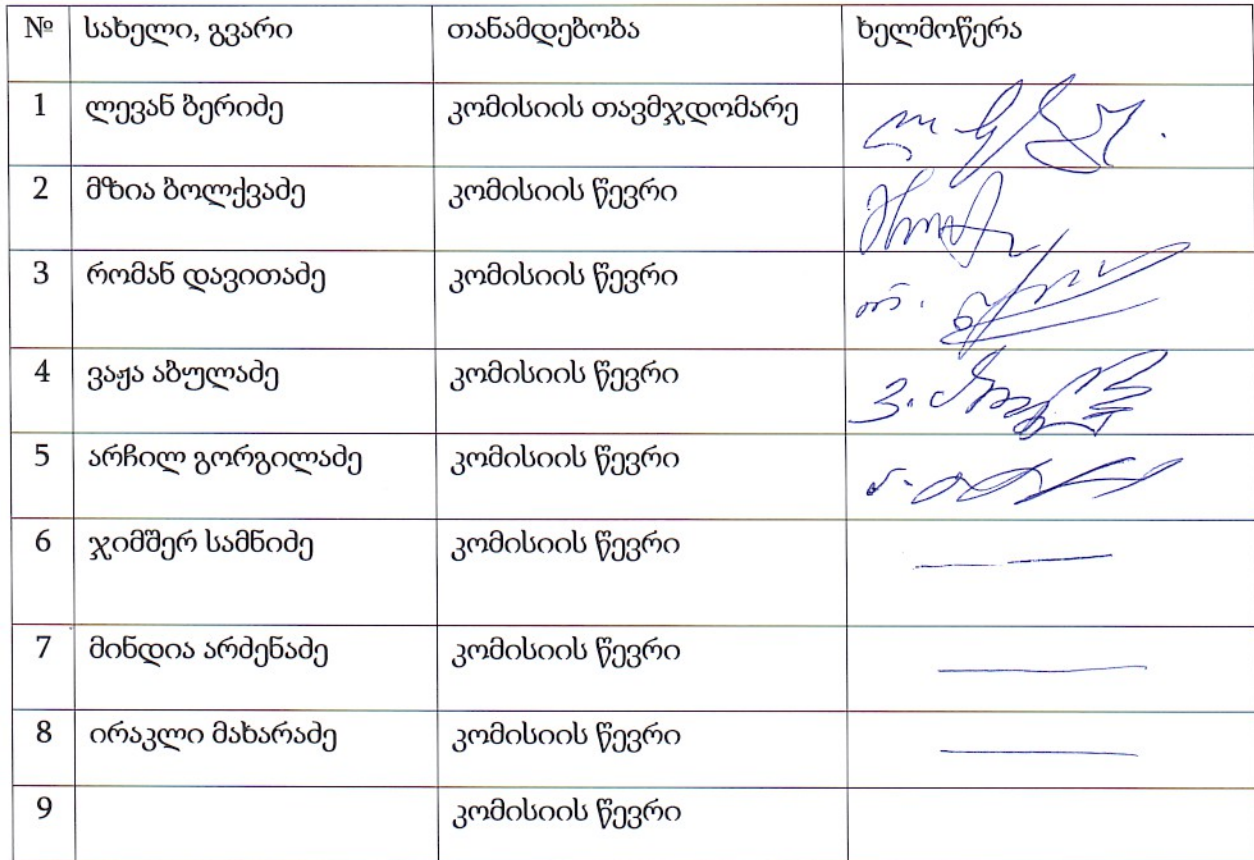 № სახელი, გვარი თანამდებობა ხელმოწერა
1 ლევან ბერიძე კომისიის თავმჯდომარე
2 მზია ბოლქვაძე კომისიის წევრი
3 რომან დავითაძე კომისიის წევრი
4 ვაჟა აბულაძე კომისიის წევრი
5 არჩილ გორგილაძე კომისიის წევრი
6 ჯიმშერ სამნიძე კომისიის წევრი
7 მინდია არძენაძე კომისიის წევრი
8 ირაკლი მახარაძე კომისიის წევრი
9 კომისიის წევრი